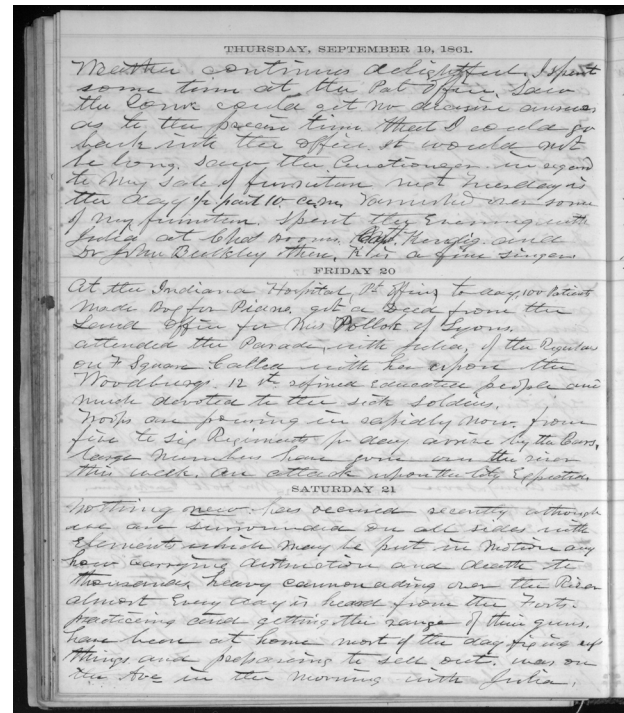 THURSDAY, SEPTEMBER 19, 1861.
Weather continues delightful. I spent
some time at the Pat Office. Saw
the Com could get no decisive answer
as to the precise time that I could go
back into the office. it would not
be long. Saw the Auctioneer in regard
to my Sale of furniture next Tuesday is
the day 1/2 past 10 a.m. Varnished over some
of my furniture. Spent the Evening with
Julia at Chas Rooms. Capt. and
Dr John Buckley there, K is a fine singer.
FRIDAY 20
At the Indiana Hospital, Pt office, to day, 100 Patients
made Box for got a Deed from the
Land Office for Mrs Pollok of Lyons.
attended the Parade, with Julia, of the Regulars
on F Square. Called with her upon the
Woodburys. 12 st refined educated people and
much devoted to the sick soldiers.
Troops are pouring in rapidly now. from
five to six Regiments pr day arrive by the Cars.
large numbers have gone over the river
this week. an attack upon the City Expected.
SATURDAY 21
Nothing new has occured recently although
we are surrounded on all sides with
Elements which may be put in motion any
hour carrying distruction and death to
thousands. heavy cannonading over the River
almost Every day is heard from the Forts.
practicing and getting the range of their guns.
have been at home most of the day fixing up
things and preparing to sell out. was on
the Ave in the morning with Julia.